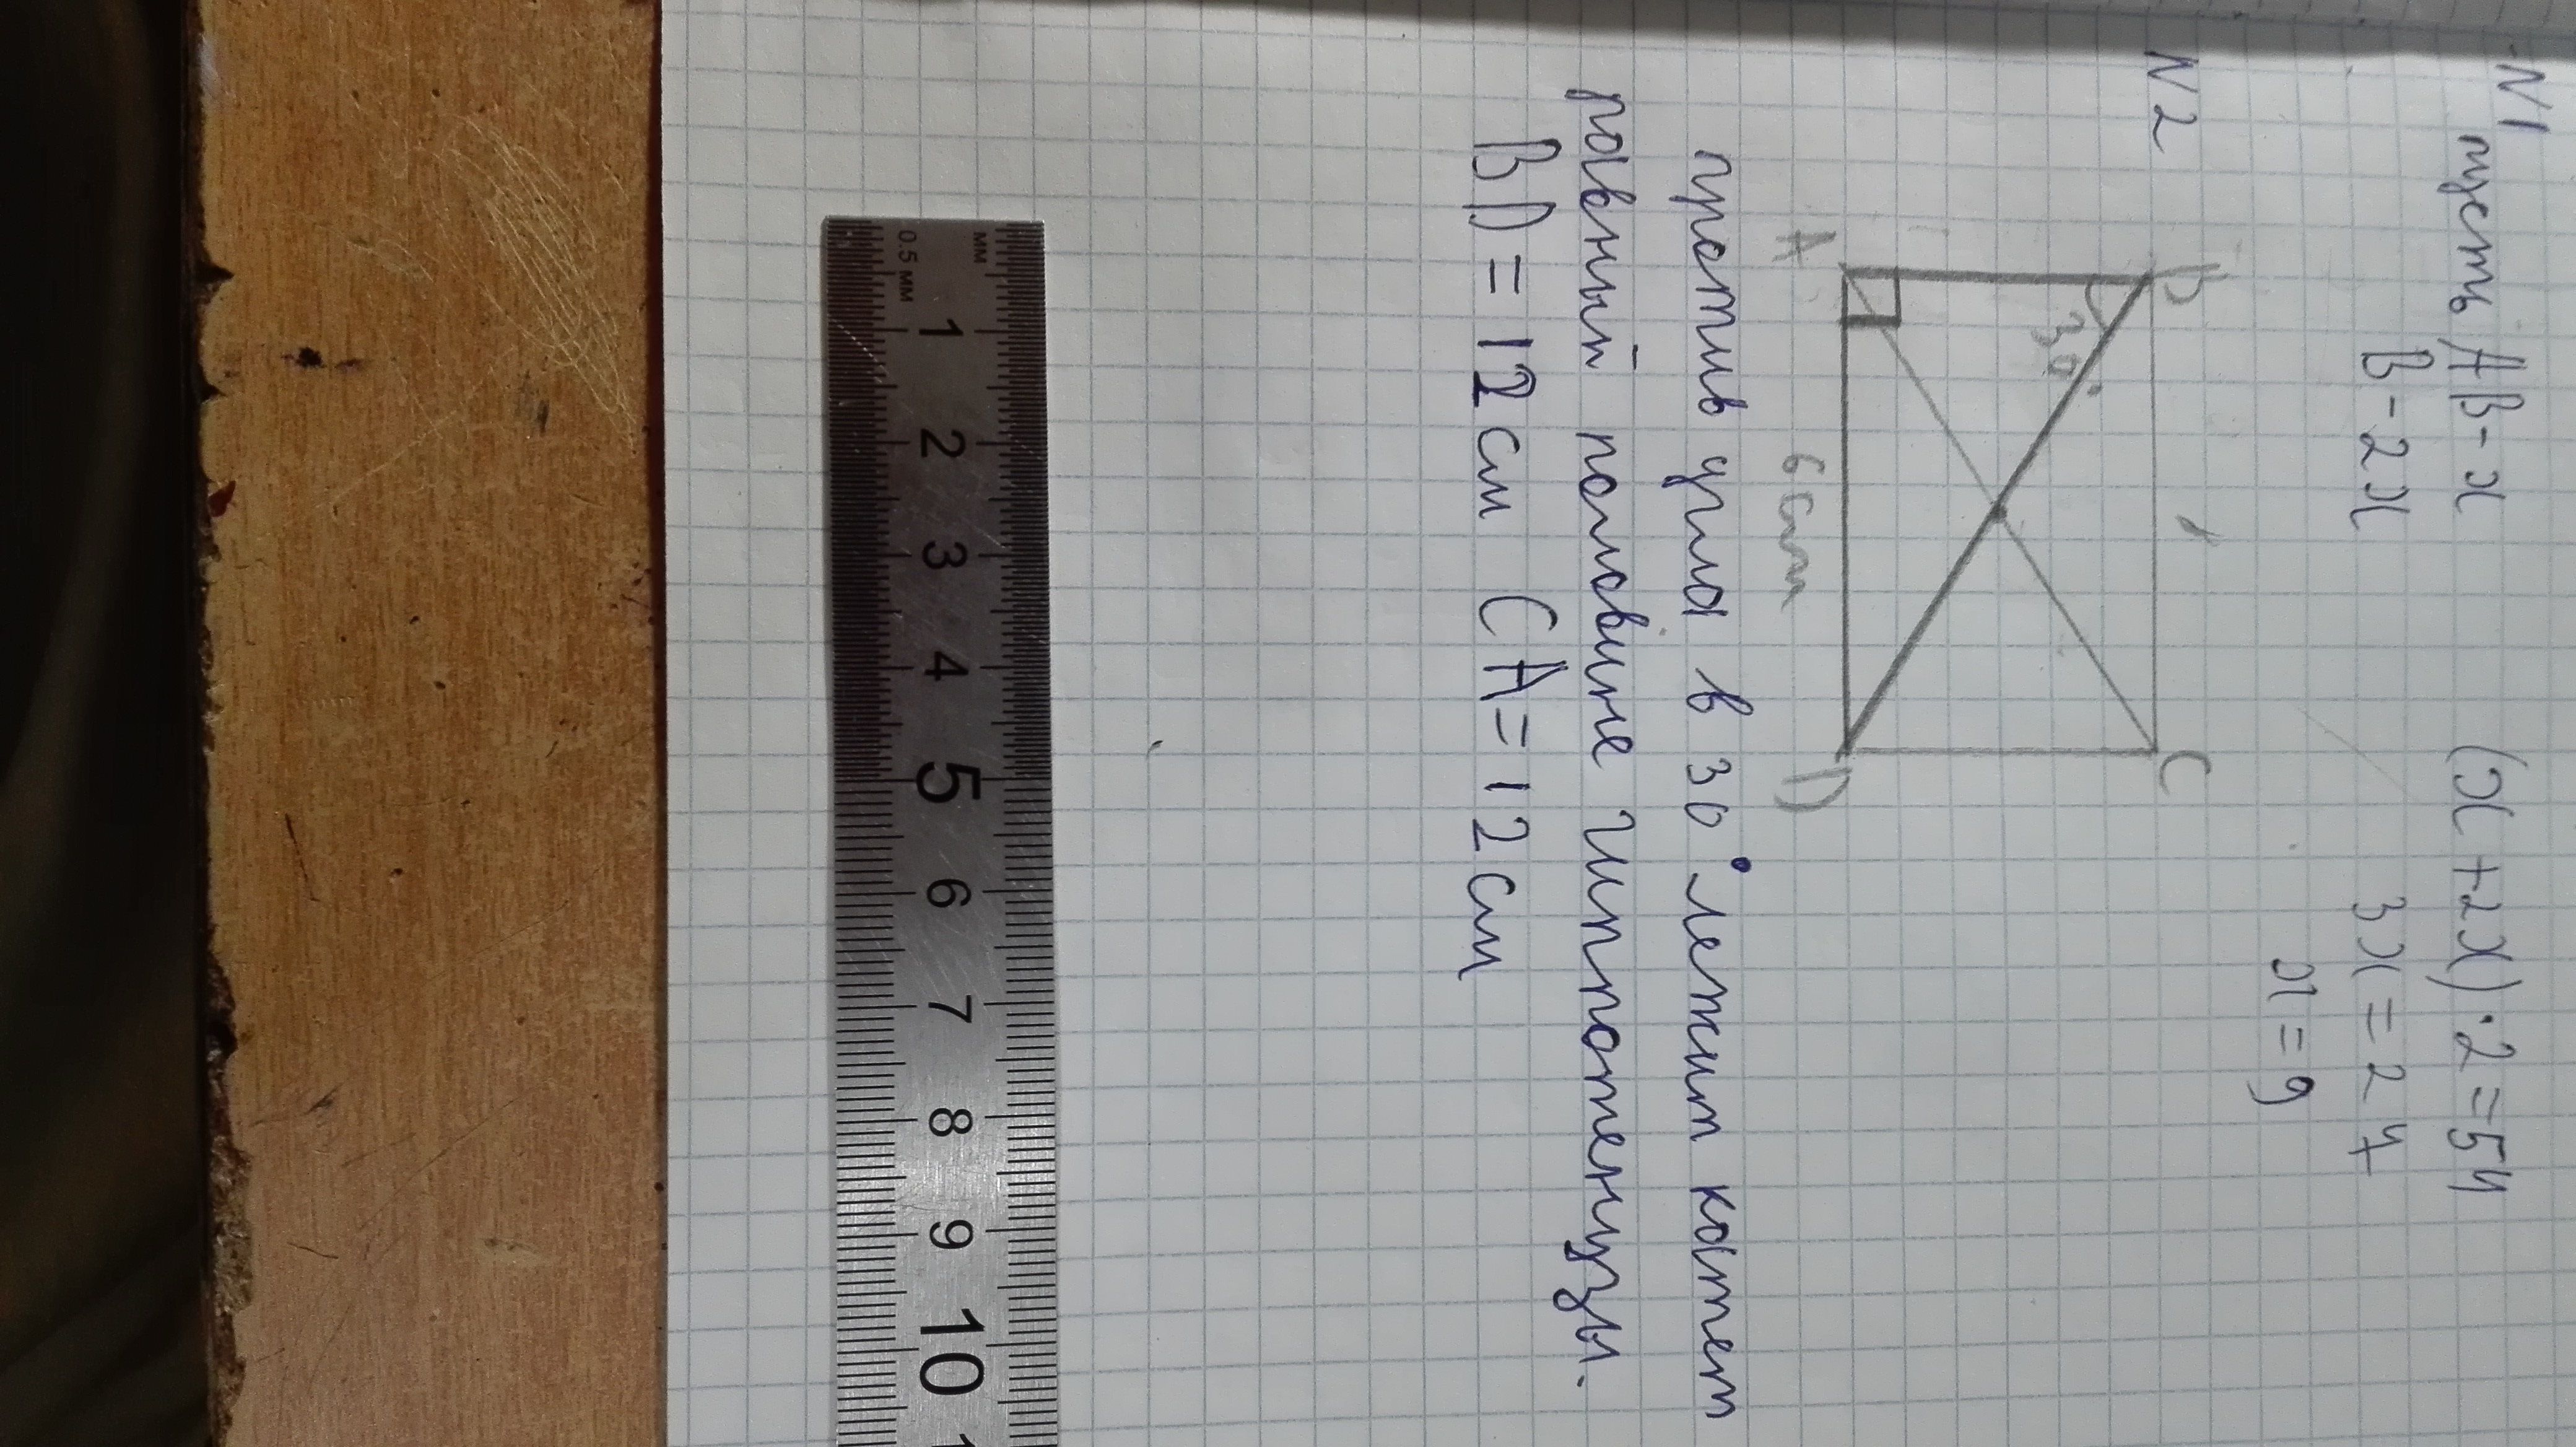 N1
пусть AB - x
B - 2x
(x + 2x) · 2 = 54
3x = 27
x = 9
N2
B
C
30°
A
6 см
D
против угла в 30° лежит катет
равный половине гипотенузы.
BD = 12 см CA = 12 см
мм
0.5 мм
1 2 3 4 5 6 7 8 9 10